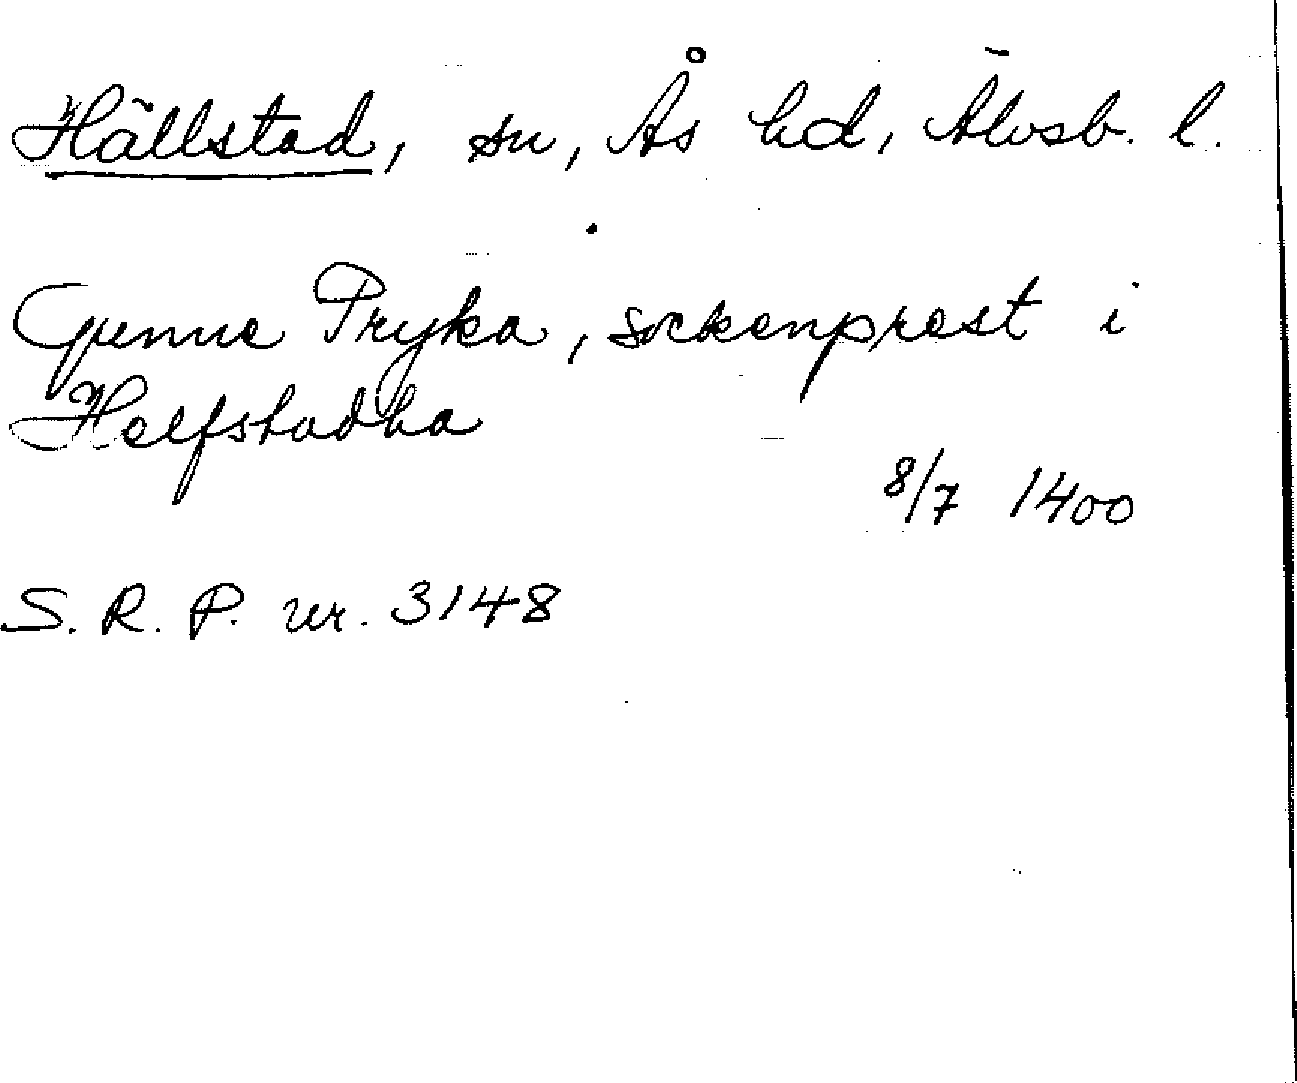 Hällstad, sn, Ås hd, Älvsb. l.
Gunne Pryka, sockenprest i
Helfstadha
8/7 1400
S. R. P. nr. 3148